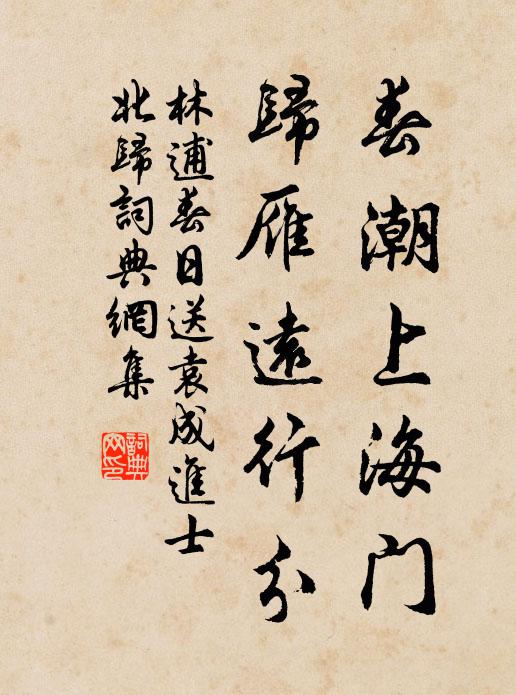 春潮上海门
歸雁遠行分
林逋春日送袁成進士
北歸詞典網集
詞典网印